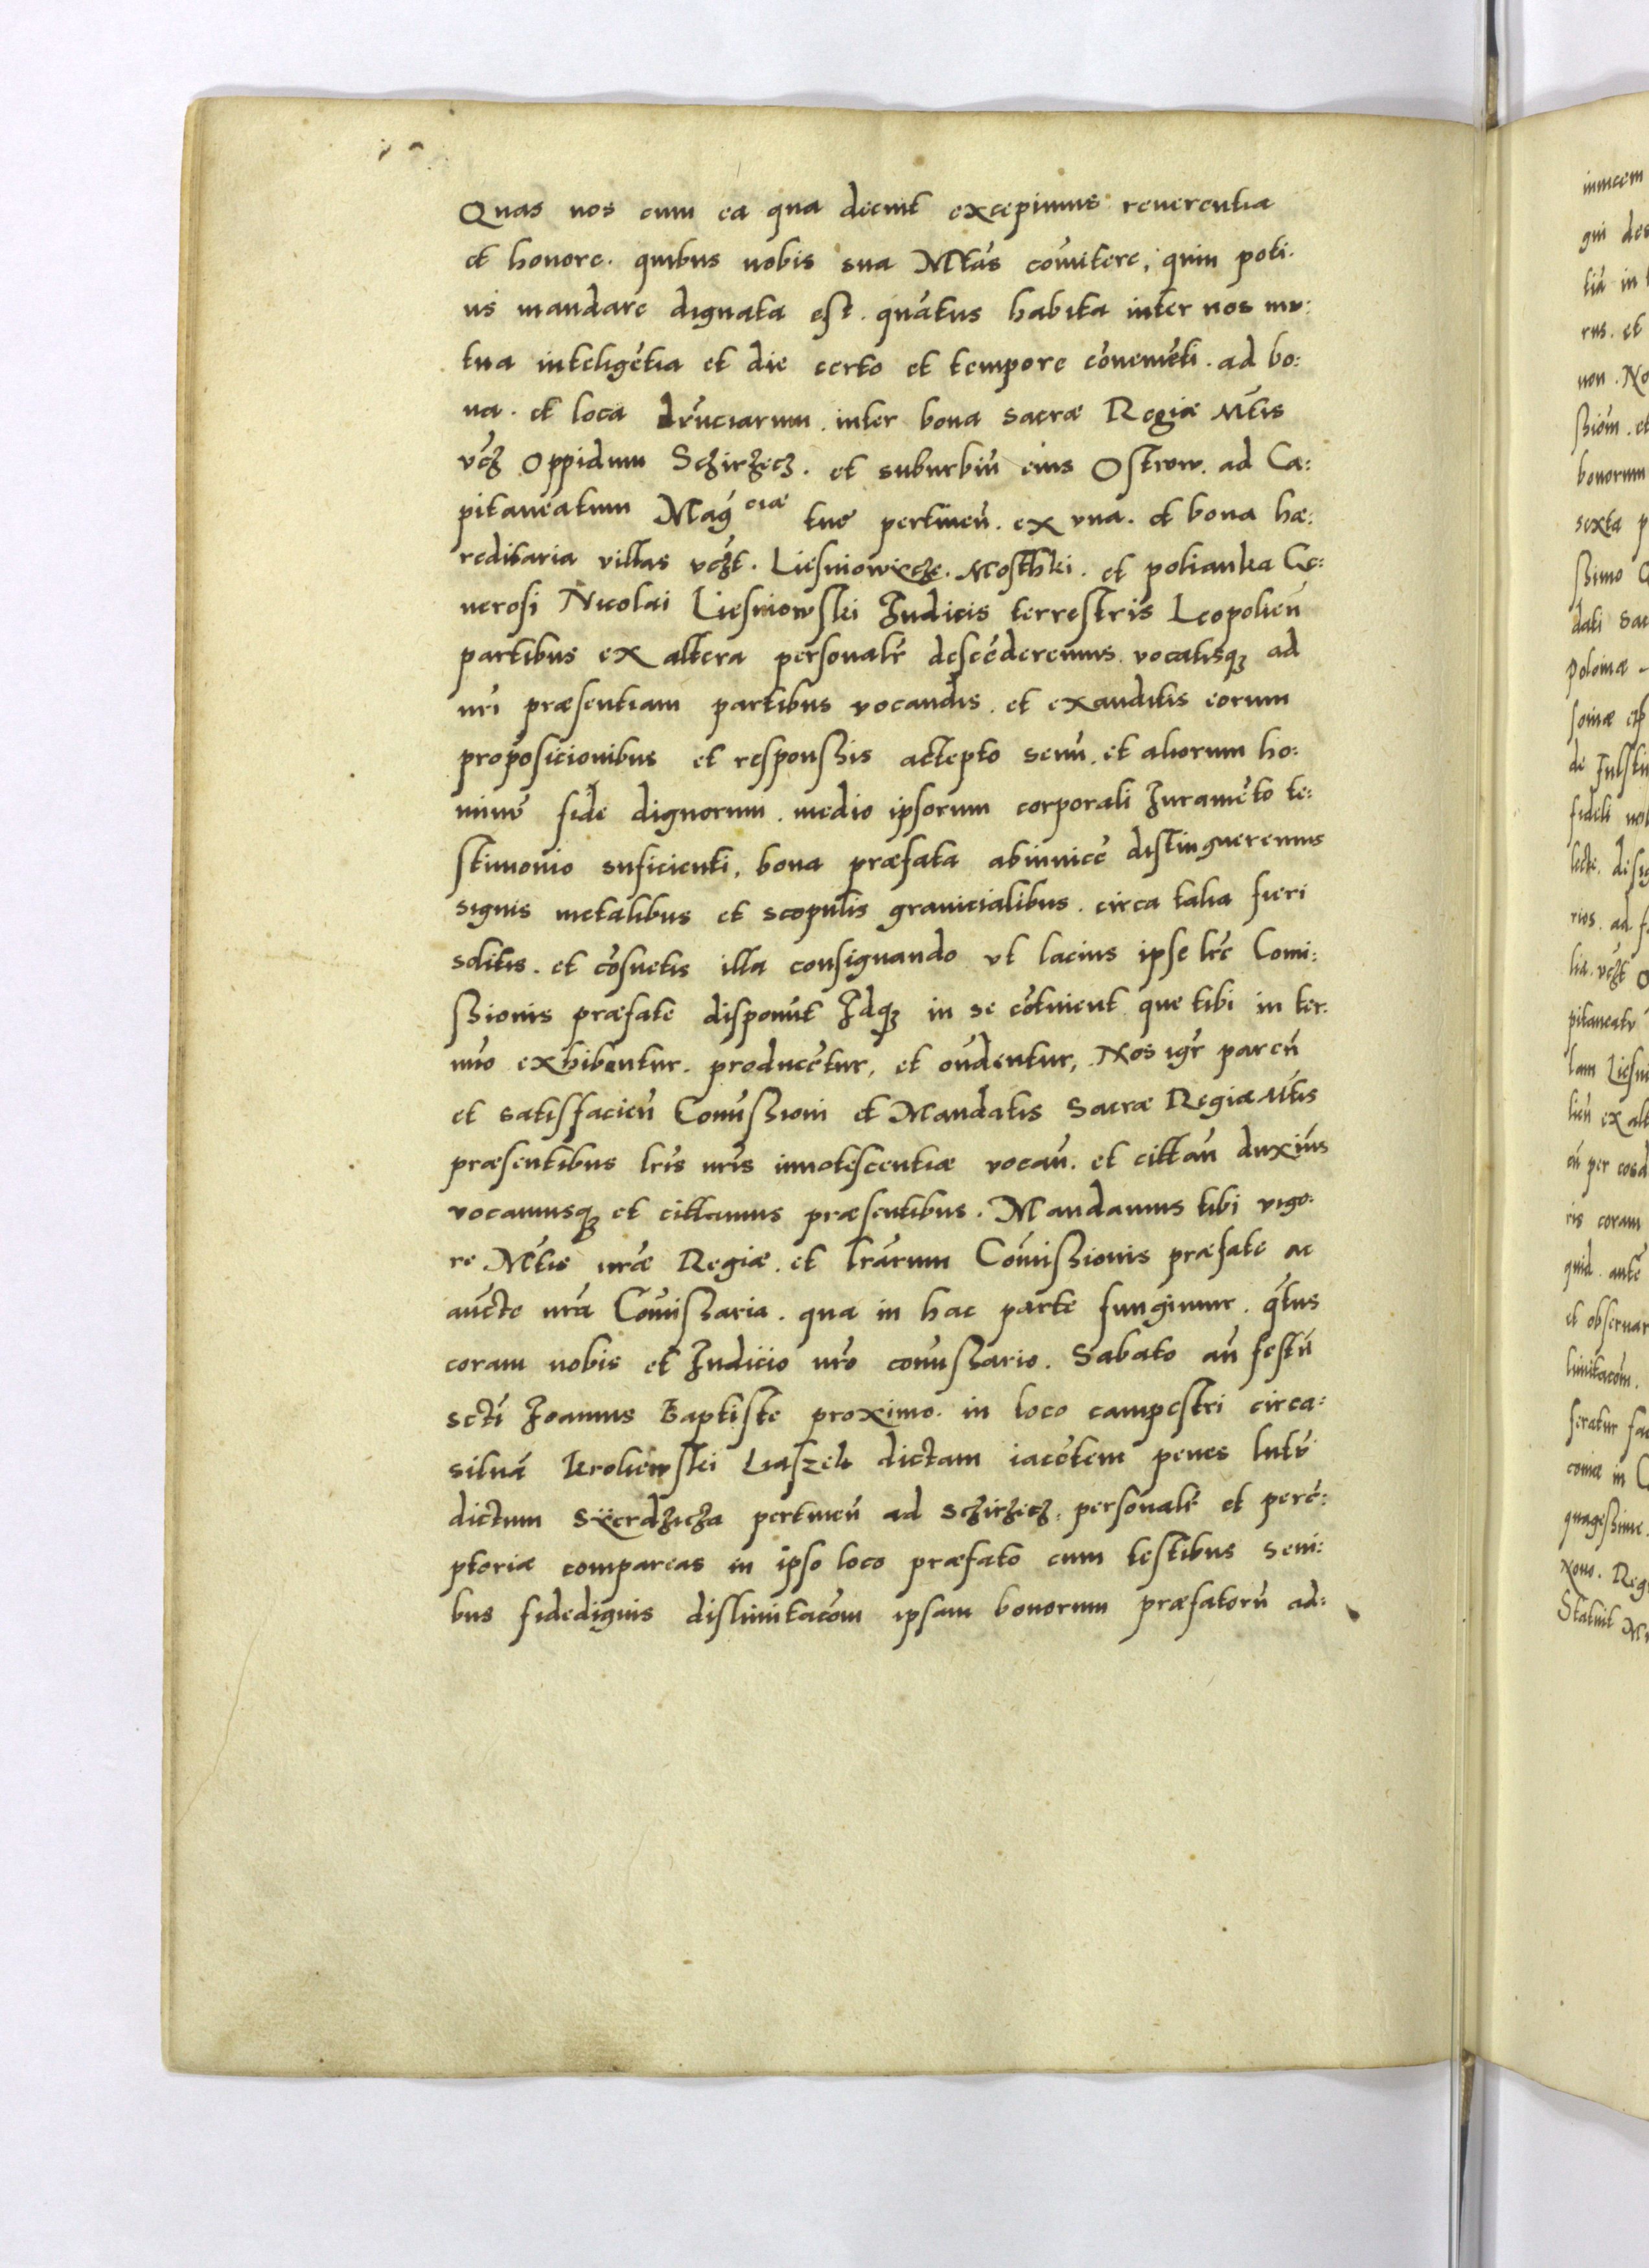 Quas nos cum ea qua decuit excepimus reuerentia
et honore. quibus nobis sua Mtas comitere, quin poti:
us mandare dignata est. quatus habita inter nos mu:
tua inteligetia et die certo et tempore coveniēti. ad bo:
na. et loca druciarum. inter bona sacræ Regiæ Mtis
vcz Oppidum Sczirzecz. et suburbiū eius Ostrow. ad Ca:
pitaneatum Mag ciæ tuæ pertineñ. ex vna. et bona hæ:
reditaria villas vczt. Liesniowicze. Mosthki. et polianka Ge:
nerosi Nicolai Liesniowski Judicis terrestris Leopolieñ
partibus ex altera personalr descēderemus. vocatisqȝ ad
nri præsentiam partibus vocandis. et exauditis eorum
proposicionibus et responssis actepto senū. et aliorum ho:
minū fide dignorum. medio ipsorum corporali Juramēto te:
stimonio suficienti, bona præfata abinuicē distingueremus
signis metalibus et scopulis granicialibus. circa talia fieri
solitis. et cōsuetis illa consignando vt lacius ipse lrē Comi:
ssionis præfate disponūt Idqȝ in se cōtinent que tibi in ter:
mīo exhibentur. producētur, et oñdentur, Nos igr pareñ
et satisfacieñ Comissioni et Mandatis Sacræ Regiæ Mtis
præsentibus lris nris innotescentiæ vocañ. et cittañ duximus
vocamusqȝ et cittamus præsentibus. Mandamus tibi vigo:
re Mtis nræ Regiæ. et lrarum Comissionis præfate ac
aucte nrā Comissaria. qua in hac parte fungimur. qtus
coram nobis et Judicio nro comissario. Sabato añ festū
scti Joannis Baptiste proximo. in loco campestri circa:
siluā Kroliewski Liaszek dictam iacētem penes lutū
dictum Szerdzicza pertineñ ad Sczirzecz, personalr et perē:
ptoriæ compareas in ipso loco præfato cum testibus seni:
bus fidedignis dislimitacōm ipsam bonorum præfatorū ad: